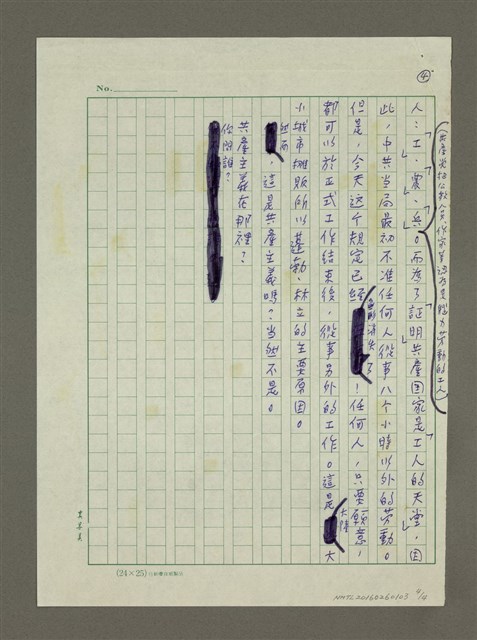 No.
④
(共產黨把公教人員、作家等認為是腦力勞動的工人)
人：「工」、「農」、「兵」。而為了「証明共產国家是「工人的天堂」，因
此，中共当局最初不准任何人從事八个小時以外的勞動。
但是，今天这个規定已經無形消失了！任何人，只要願意，
都可以於正式工作結束後，從事另外的工作。這是大陸大
小城市攤販所以蓬勃林立的主要原因。
然而，這是共產主義嗎？当然不是。
共產主義在那裡？
你問誰？
(24×25)
NMTL20160260103 4/14